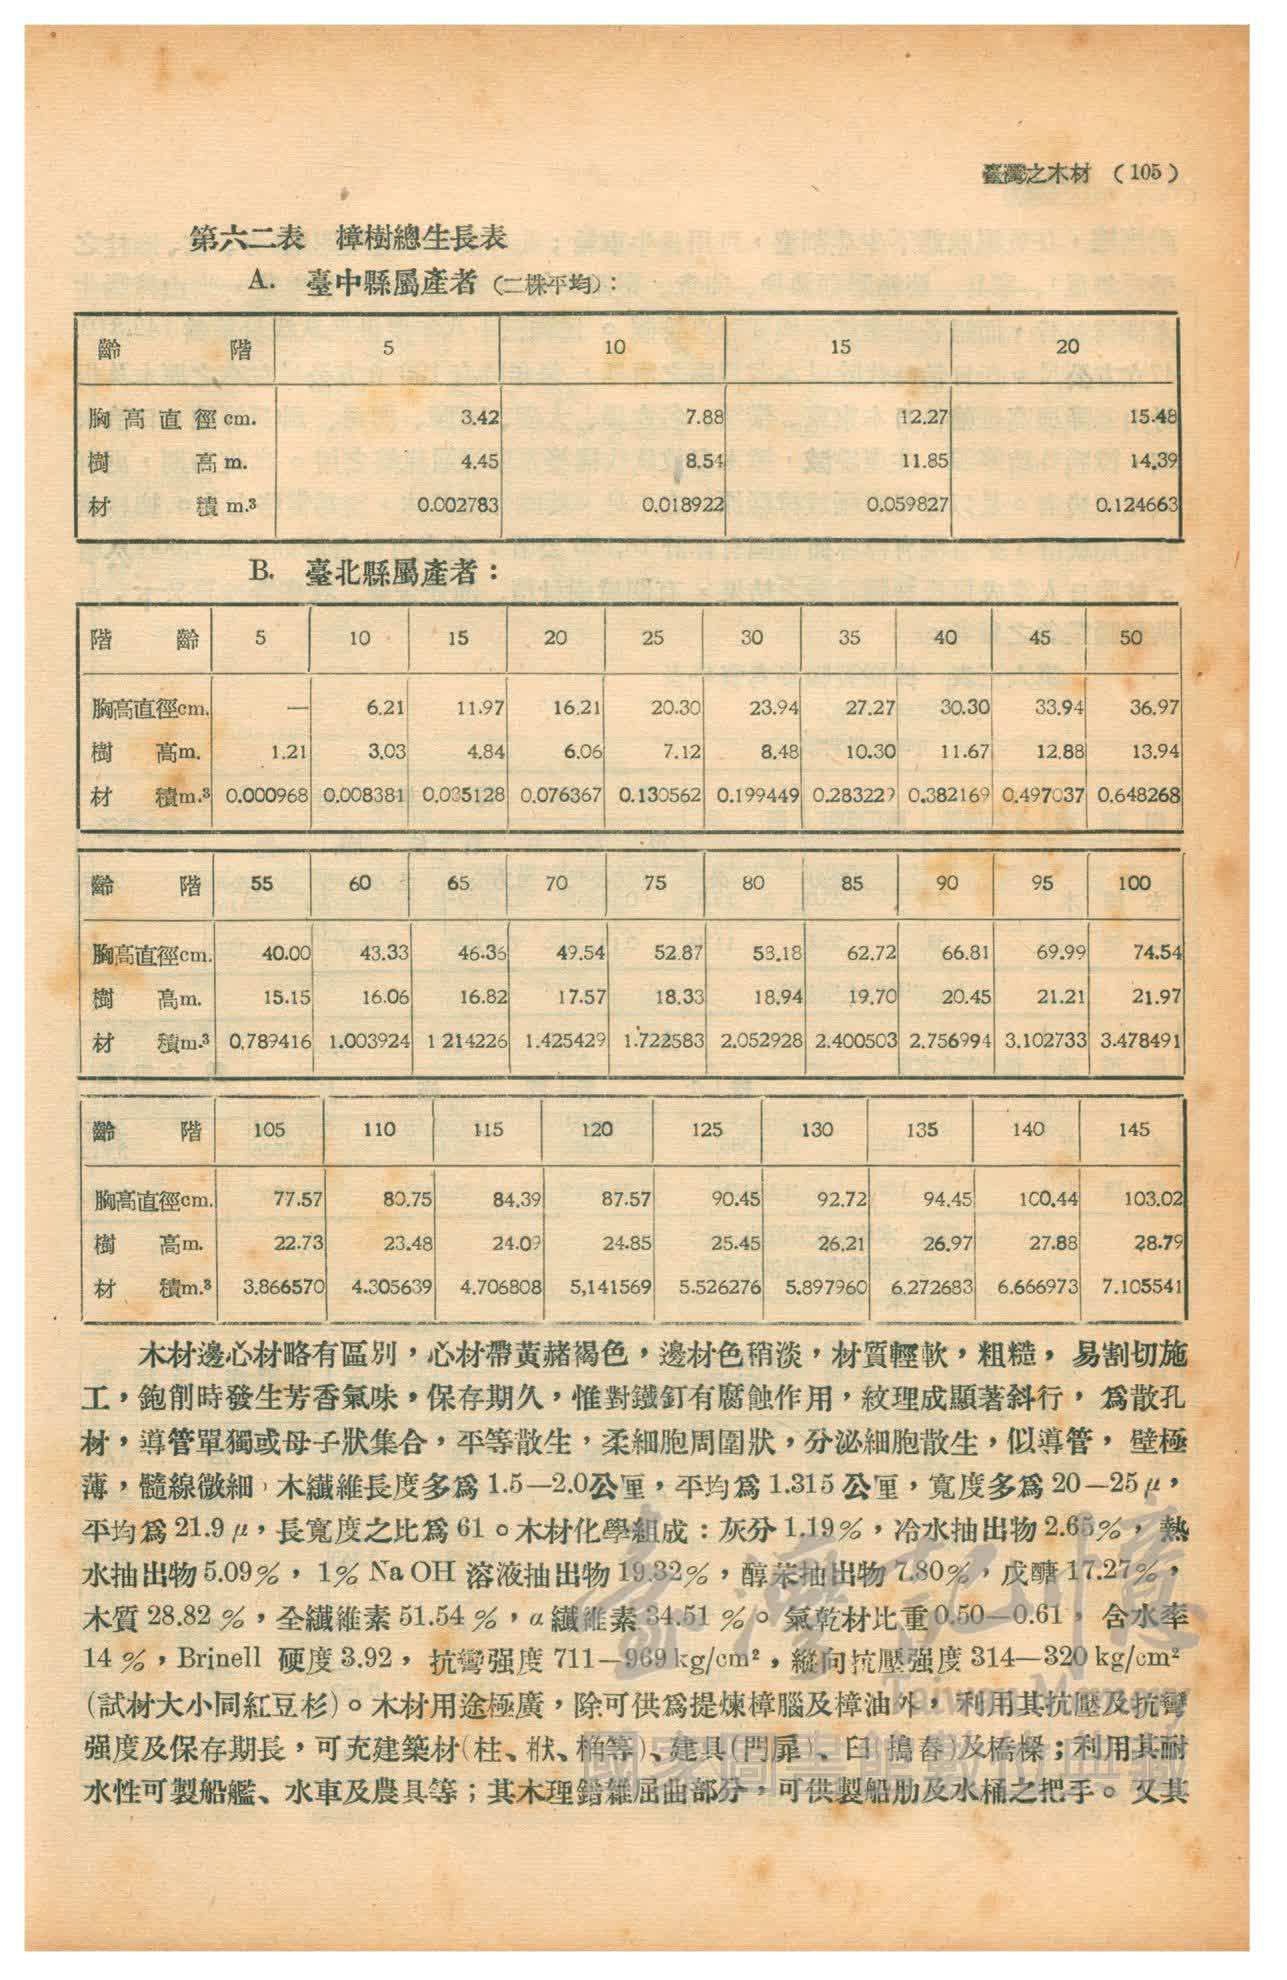 臺灣之木材 （105）
第六二表 樟樹總生長表
A. 臺中縣屬產者 (二株平均)：
齡階 5 10 15 20
胸高直徑cm. 3.42 7.88 12.27 15.48
樹高m. 4.45 8.54 11.85 14.39
材積m.³ 0.002783 0.018922 0.059827 0.124663
B. 臺北縣屬產者：
階齡 5 10 15 20 25 30 35 40 45 50
胸高直徑cm. — 6.21 11.97 16.21 20.30 23.94 27.27 30.30 33.94 36.97
樹高m. 1.21 3.03 4.84 6.06 7.12 8.48 10.30 11.67 12.88 13.94
材積m.³ 0.000968 0.008381 0.035128 0.076367 0.130562 0.199449 0.283227 0.382169 0.497037 0.648268
齡階 55 60 65 70 75 80 85 90 95 100
胸高直徑cm. 40.00 43.33 46.36 49.54 52.87 58.18 62.72 66.81 69.99 74.54
樹高m. 15.15 16.06 16.82 17.57 18.33 18.94 19.70 20.45 21.21 21.97
材積m.³ 0.789416 1.003924 1 214226 1.425429 1.722583 2.052928 2.400503 2.756994 3.102733 3.478491
齡階 105 110 115 120 125 130 135 140 145
胸高直徑cm. 77.57 80.75 84.39 87.57 90.45 92.72 94.45 100.44 103.02
樹高m. 22.73 23.48 24.09 24.85 25.45 26.21 26.97 27.88 28.79
材積m.³ 3.866570 4.305639 4.706808 5,141569 5.526276 5.897960 6.272683 6.666973 7.105541
木材邊心材略有區別，心材帶黃赭褐色，邊材色稍淡，材質輕軟，粗糙，易割切施
工，鉋削時發生芳香氣味，保存期久，惟對鐵釘有腐蝕作用，紋理成顯著斜行，爲散孔
材，導管單獨或母子狀集合，平等散生，柔細胞周圍狀，分泌細胞散生，似導管，壁極
薄，髓線微細，木纖維長度多爲1.5—2.0公厘，平均爲1.315公厘，寬度多爲20—25μ，
平均爲21.9μ，長寬度之比爲61。木材化學組成：灰分1.19%，冷水抽出物2.65%，熱
水抽出物5.09%，1% NaOH 溶液抽出物19.32%，醇苯抽出物7.80%，戊醣17.27%，
木質28.82%，全纖維素51.54%，α纖維素34.51%。氣乾材比重0.50—0.61，含水率
14%，Brinell 硬度3.92，抗彎强度711—969kg/cm²，縱向抗壓强度314—320kg/cm²
(試材大小同紅豆杉)。木材用途極廣，除可供爲提煉樟腦及樟油外，利用其抗壓及抗彎
强度及保存期長，可充建築材(柱、栿、桷等)、建具(門扉)、臼(搗舂)及橋樑；利用其耐
水性可製船艦、水車及農具等；其木理錯雜屈曲部分，可供製船肋及水桶之把手。又其
臺灣記憶
Taiwan Memory
國家圖書館數位典藏